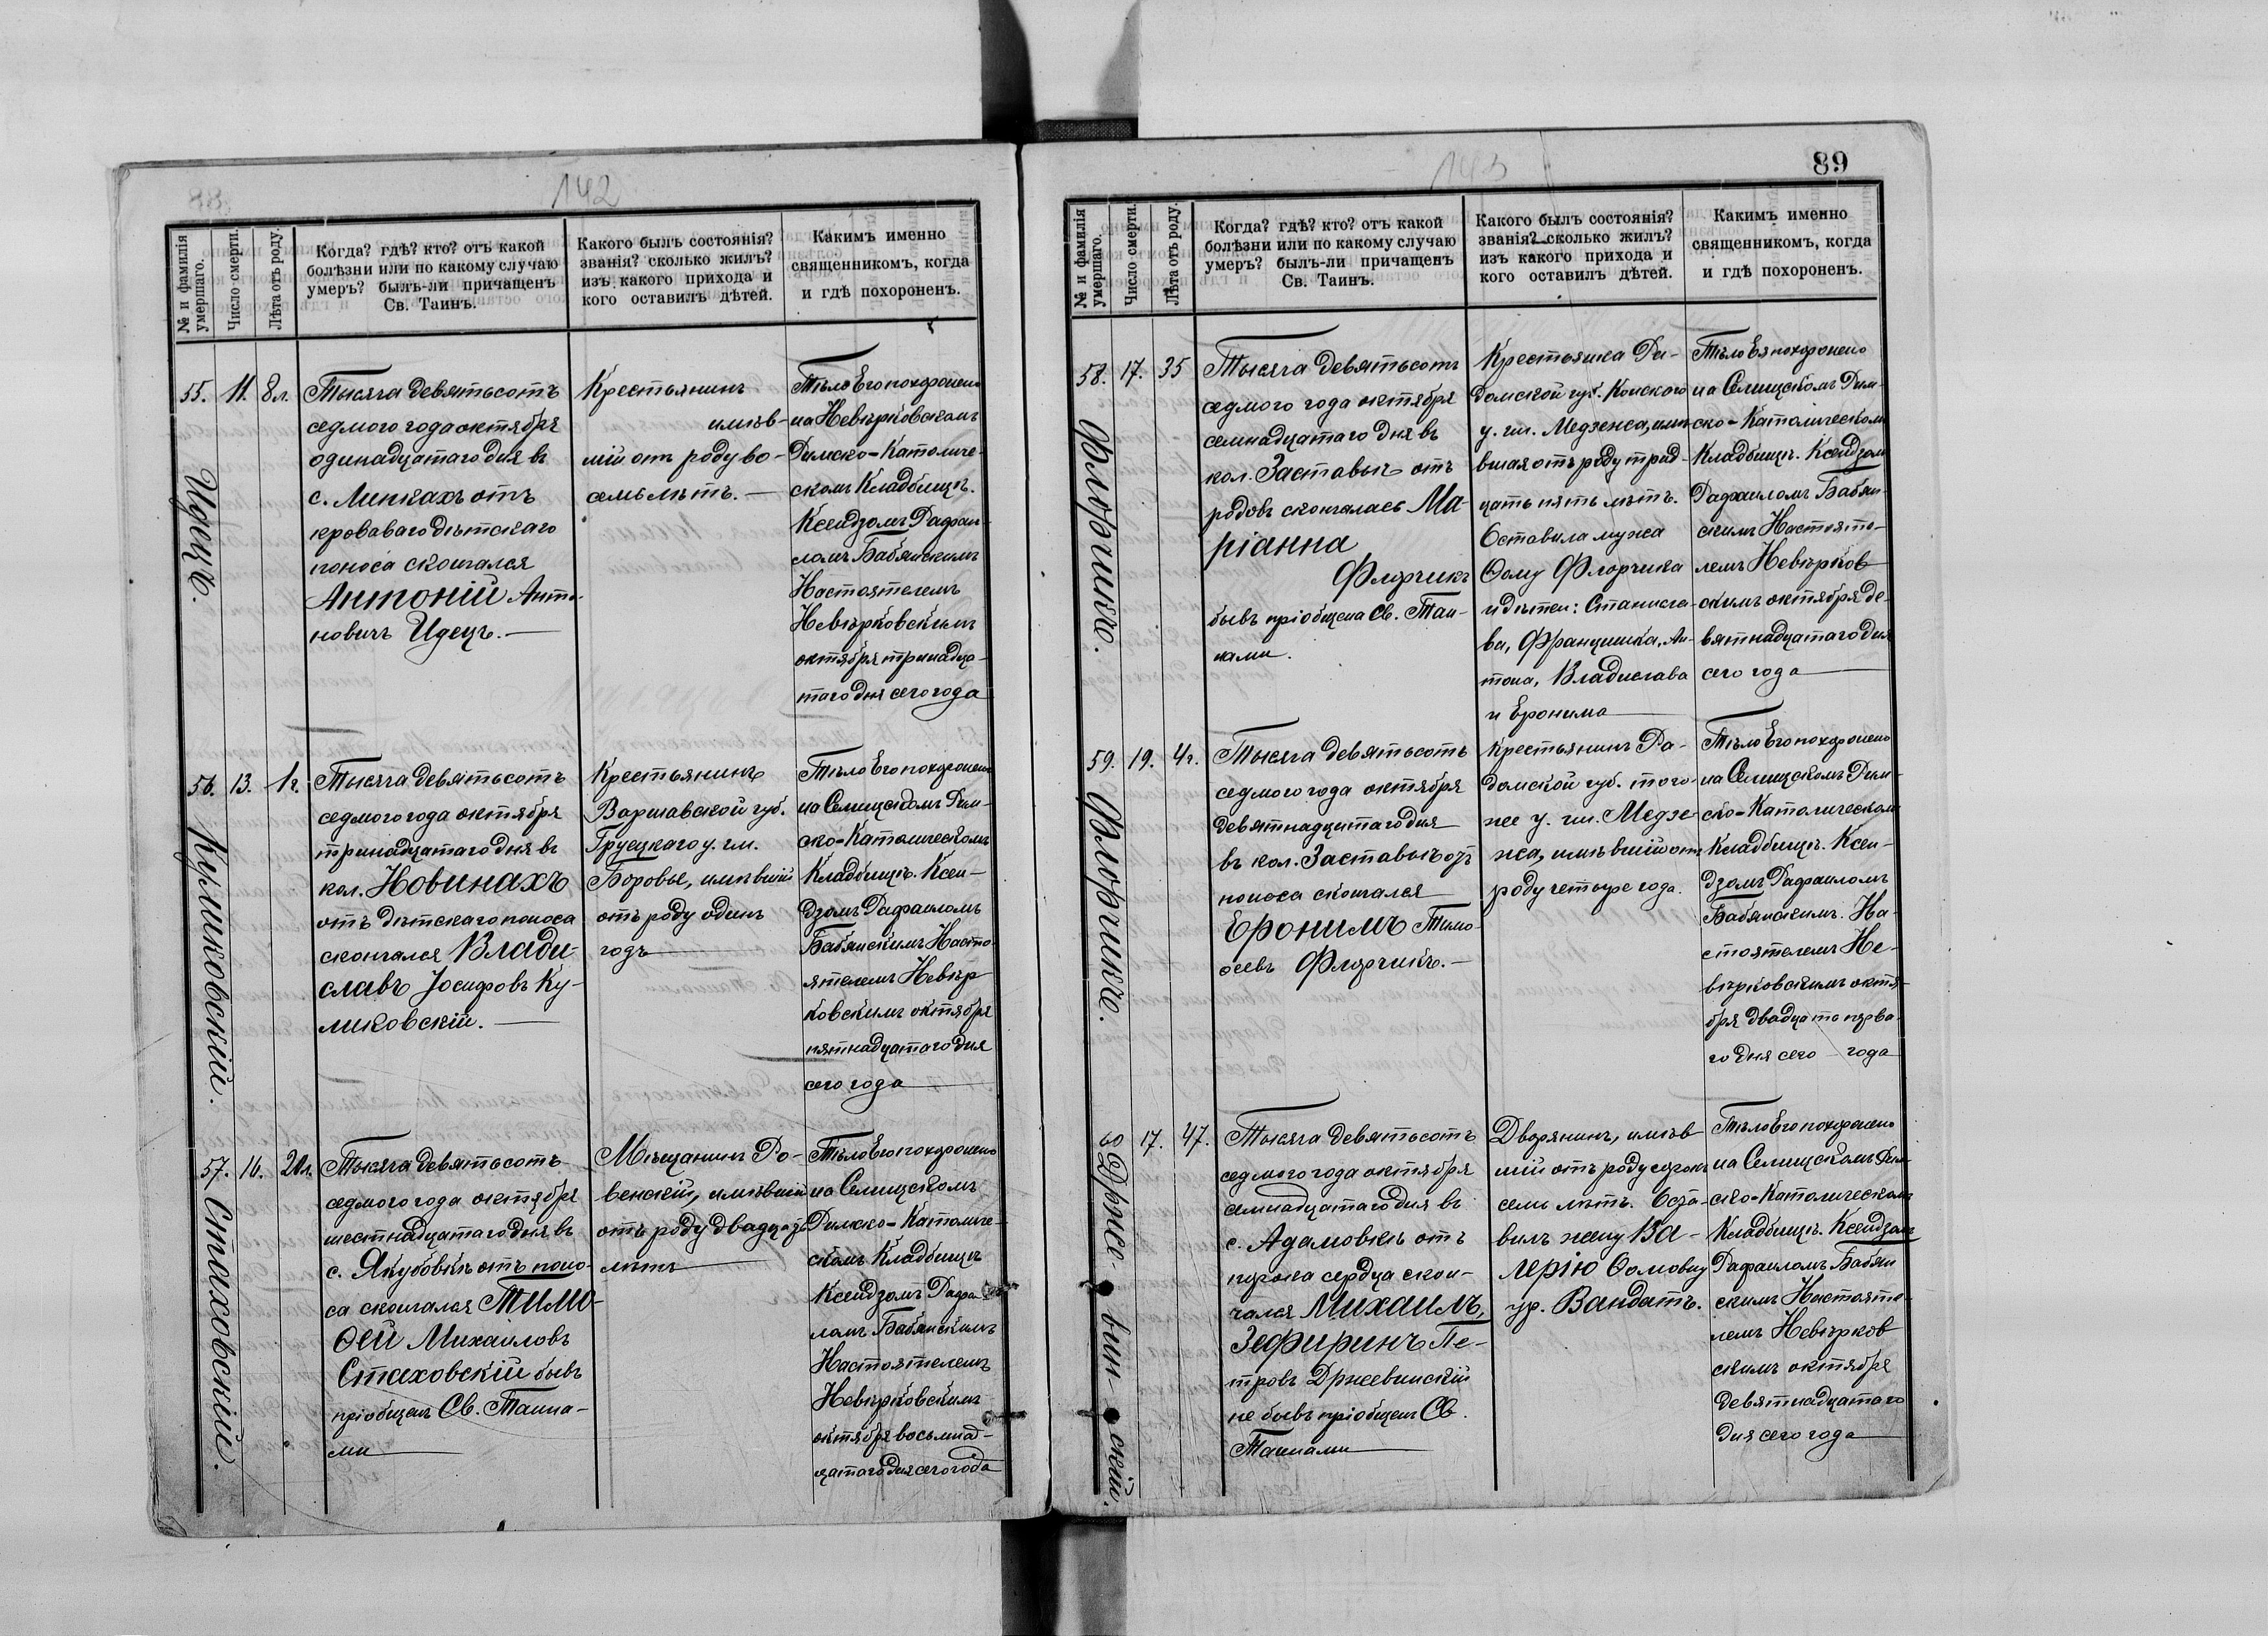 142
№ и фамилія умершаго.
Число смерти.
Лѣта отъ роду.
Когда? гдѣ? кто? отъ какой
болѣзни или по какому случаю
умеръ? былъ-ли причащенъ
Св. Таинъ.
Какого былъ состоянія?
званія? сколько жилъ?
изъ какого прихода и
кого оставилъ дѣтей.
Какимъ именно
священникомъ, когда
и гдѣ похороненъ.
55.
Идецъ.
11.
8 л.
Тысяча девятьсотъ
седмого года октября
одинадцатаго дня въ
с. Липкахъ отъ
кроваваго дѣтскаго
поноса скончался
Антоній Анто-
новичъ Идецъ.—
Крестьянинъ
имѣв-
шій отъ роду во-
семь лѣтъ.—
Тѣло Его похоронено
на Невѣрковскомъ
Римско-Католиче-
скомъ Кладбищѣ.
Ксендзомъ Рафаи-
ломъ Бабянскимъ
Настоятелемъ
Невѣрковскимъ
октября тринадца-
таго дня сего года
56.
Куликовскій.
13.
1 г.
Тысяча девятьсотъ
седмого года октября
тринадцатаго дня въ
кол. Новинахъ
отъ дѣтскаго поноса
скончался Влади-
славъ Іосифовъ Ку-
ликовскій.—
Крестьянинъ
Варшавской губ.
Груецкаго у. гм.
Боровье, имѣвшій
отъ роду одинъ
годъ—
Тѣло Его похоронено
на Селищскомъ Рим-
ско-Католическомъ
Кладбищѣ. Ксен-
дзомъ Рафаиломъ
Бабянскимъ Насто-
ятелемъ Невѣр
ковскимъ октября
пятнадцатаго дня
сего года—
57.
Стаховскій.
16.
20 л.
Тысяча девятьсотъ
седмого года октября
шестнадцатаго дня въ
с. Якубовкѣ отъ поно-
са скончался Тимо-
ѳей Михаиловъ
Стаховскій бывъ
пріобщенъ Св. Таина-
ми—
Мѣщанинъ Ро-
венскій, имѣвшій
отъ роду двадцать
лѣтъ—
Тѣло Его похоронено
на Селищскомъ
Римско-Католиче-
скомъ Кладбищѣ
Ксендзомъ Рафаи-
ломъ Бабянскимъ
Настоятелемъ
Невѣрковскимъ
октября восьмнад-
цатаго дня сего года
143
89
№ и фамилія умершаго.
Число смерти.
Лѣта отъ роду.
Когда? гдѣ? кто? отъ какой
болѣзни или по какому случаю
умеръ? былъ-ли причащенъ
Св. Таинъ.
Какого былъ состоянія?
званія? сколько жилъ?
изъ какого прихода и
кого оставилъ дѣтей.
Какимъ именно
священникомъ, когда
и гдѣ похороненъ.
58.
Флорчикъ.
17.
35
Тысяча девятьсотъ
седмого года октября
семнадцатаго дня въ
кол. Заставье отъ
родовъ скончалась Ма-
ріанна
Флорчикъ
бывъ пріобщена Св. Таи-
нами.
Крестьянка Ра-
домской губ. Конского
у. гм. Медзежа, имѣ
вшая отъ роду трид-
цать пять лѣтъ.
Оставила мужа
Ѳому Флорчика
и дѣтей: Станисла-
ва, Францишка, Ан-
тона, Владислава
и Еронима—
Тѣло Ея похоронено
на Селищскомъ Рим-
ско-Католическомъ
Кладбищѣ. Ксендзомъ
Рафаиломъ Бабян-
скимъ Настояте-
лемъ Невѣрков
скимъ октября де-
вятнадцатаго дня
сего года—
59.
Флорчикъ.
19.
4 г.
Тысяча девятьсотъ
седмого года октября
девятнадцатаго дня
въ кол. Заставье отъ
поноса скончался
Еронимъ Тимо-
ѳеевъ Флорчикъ.—
Крестьянинъ Ра-
домской губ. того-
же у. гм. Медзе-
жа, имѣвшій отъ
роду четыре года.
Тѣло Его похоронено
на Селищскомъ Рим-
ско-Католическомъ
Кладбищѣ. Ксен-
дзомъ Рафаиломъ
Бабянскимъ. На-
стоятелемъ Не-
вѣрковскимъ октя-
бря двадцать перва-
го дня сего года
60
Држевинскій.
17.
47.
Тысяча девятьсотъ
седмого года октября
семнадцатаго дня въ
с. Адамовкѣ отъ
порока сердца скон-
чался Михаилъ,
Зефиринъ Пе-
тровъ Држевинскій
не бывъ пріобщенъ Св.
Таинами—
Дворянинъ, имѣв
шій отъ роду сорокъ
семь лѣтъ. Оста-
вилъ жену Ва-
лерію Ѳомовну
ур. Вандатъ.
Тѣло Его похоронено
на Селищскомъ Рим-
ско-Католическомъ
Кладбищѣ. Ксендзомъ
Рафаиломъ Бабян
скимъ Настояте-
лемъ Невѣрков
скимъ октября
девятнадцатаго
дня сего года—